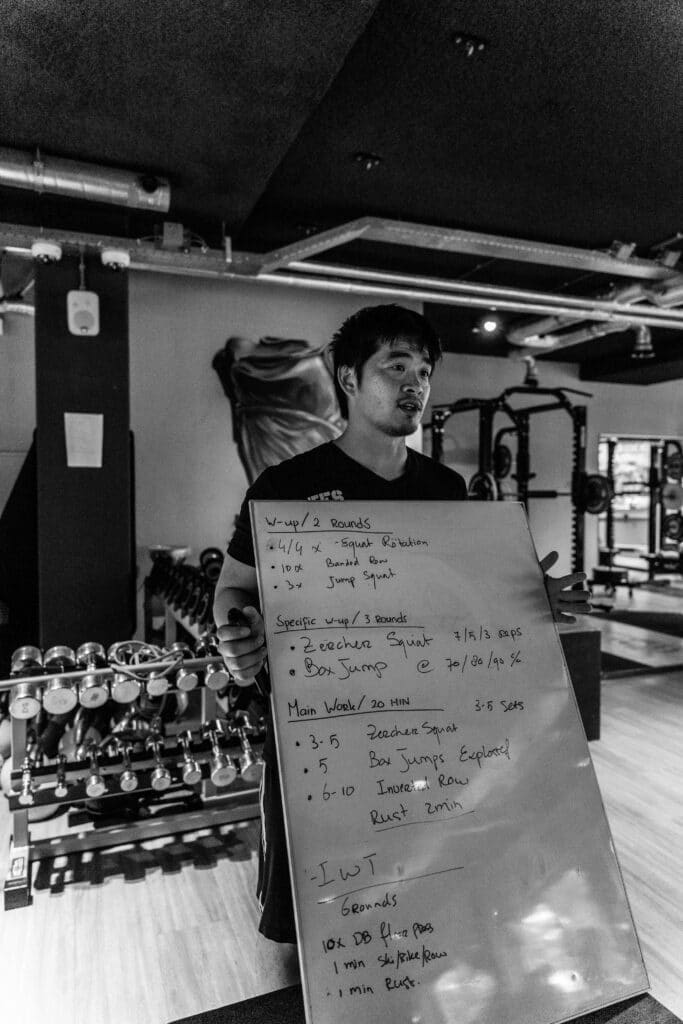 TES
W-up/2 Rounds
• 4/4 x - Squat Rotation
• 10x Banded Row
• 3x Jump Squat
Specific w-up/3 Rounds
• Zercher Squat 7/5/3 reps
• Box Jump @ 70/80/90 %
Main Work/20 MIN 3-5 Sets
• 3-5 Zercher Squat
• 5 Box Jumps Explosief
• 6-10 Inverted Row
Rust 2min
- IWT
6rounds
10x DB floor press
1 min Ski/Bike/Row
- 1 min Rust.